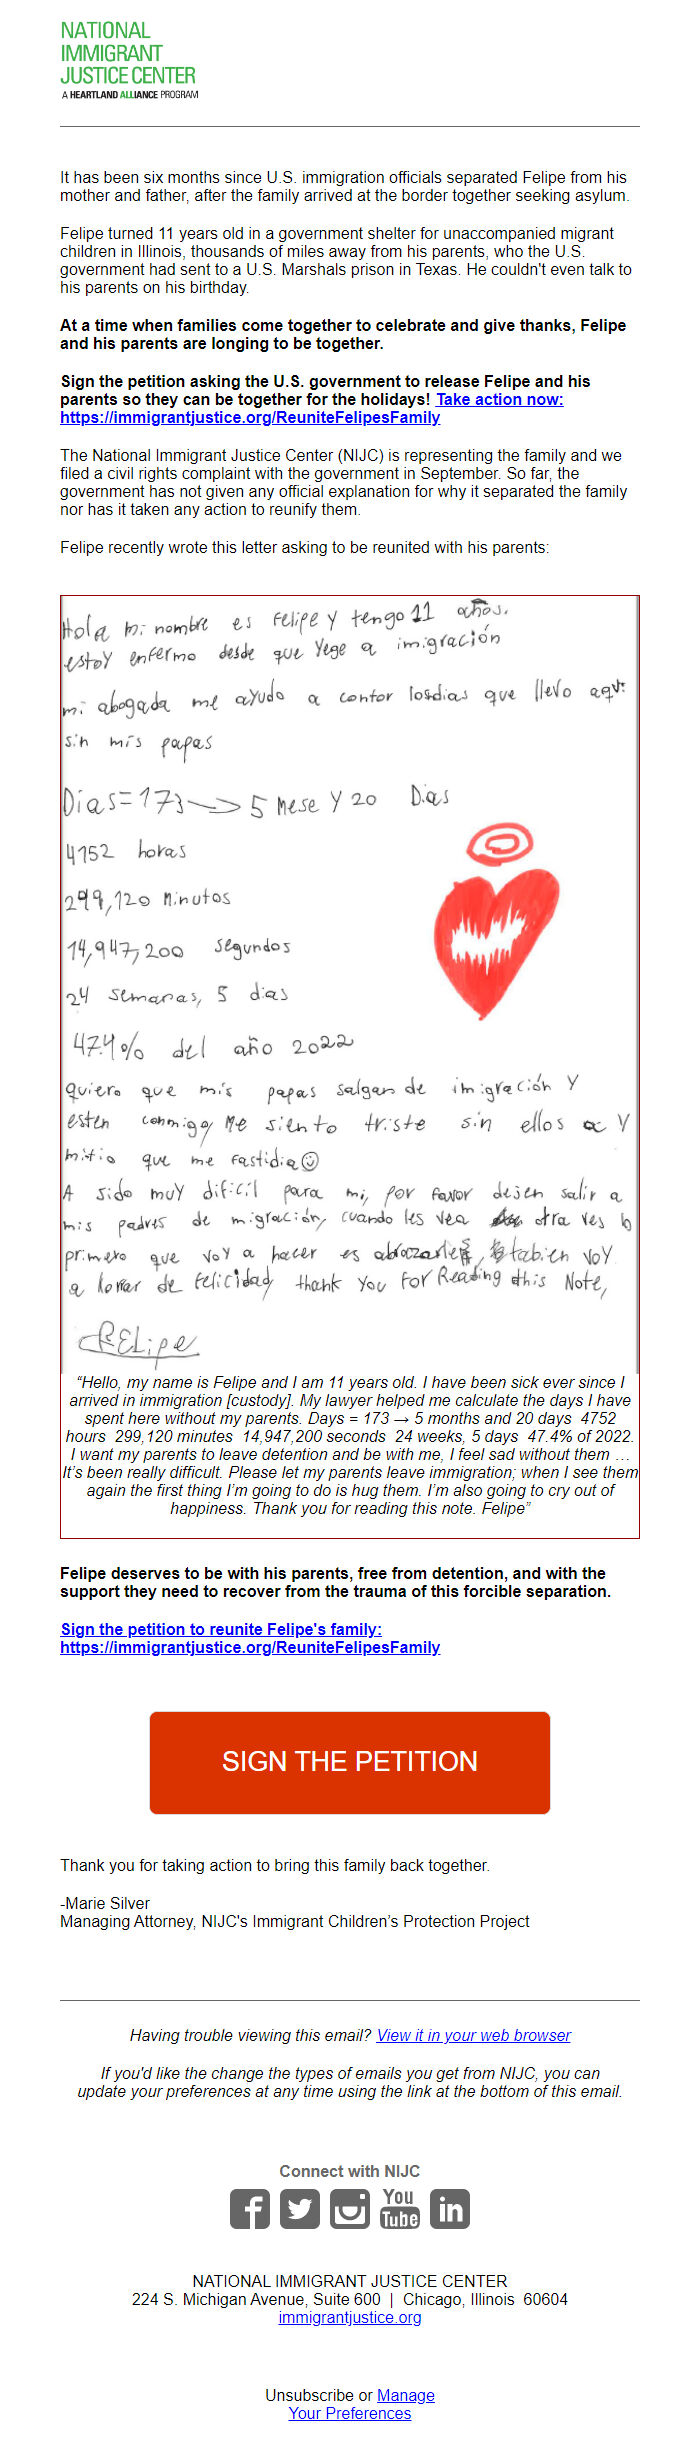 NATIONAL
IMMIGRANT
JUSTICE CENTER
A HEARTLAND ALLIANCE PROGRAM
It has been six months since U.S. immigration officials separated Felipe from his
mother and father, after the family arrived at the border together seeking asylum.
Felipe turned 11 years old in a government shelter for unaccompanied migrant
children in Illinois, thousands of miles away from his parents, who the U.S.
government had sent to a U.S. Marshals prison in Texas. He couldn't even talk to
his parents on his birthday.
At a time when families come together to celebrate and give thanks, Felipe
and his parents are longing to be together.
Sign the petition asking the U.S. government to release Felipe and his
parents so they can be together for the holidays! Take action now:
https://immigrantjustice.org/ReuniteFelipesFamily
The National Immigrant Justice Center (NIJC) is representing the family and we
filed a civil rights complaint with the government in September. So far, the
government has not given any official explanation for why it separated the family
nor has it taken any action to reunify them.
Felipe recently wrote this letter asking to be reunited with his parents:
Hola mi nombre es Felipe y tengo 11 años.
estoy enfermo desde que Yege a imigración
mi abogada me ayudo a contar losdias que llevo aqui
sin mis papas
Dias=173→5 Mese Y 20 Dias
4152 horas
299,120 Minutos
14,947,200 segundos
24 semanas, 5 dias
47.4% del año 2022
quiero que mis papas salgan de imigración Y
esten conmigo, Me siento triste sin ellos Y
mitio que me fastidia☺
A sido muy dificil para mi, por favor dejen salir a
mis padres de migración, cuando les vea otra ves lo
primero que voy a hacer es abrazarles, tabien voy
a lorar de felicidad thank you For Reading this Note,
FELipe
“Hello, my name is Felipe and I am 11 years old. I have been sick ever since I
arrived in immigration [custody]. My lawyer helped me calculate the days I have
spent here without my parents. Days = 173 → 5 months and 20 days 4752
hours 299,120 minutes 14,947,200 seconds 24 weeks, 5 days 47.4% of 2022.
I want my parents to leave detention and be with me, I feel sad without them …
It’s been really difficult. Please let my parents leave immigration; when I see them
again the first thing I’m going to do is hug them. I’m also going to cry out of
happiness. Thank you for reading this note. Felipe”
Felipe deserves to be with his parents, free from detention, and with the
support they need to recover from the trauma of this forcible separation.
Sign the petition to reunite Felipe's family:
https://immigrantjustice.org/ReuniteFelipesFamily
SIGN THE PETITION
Thank you for taking action to bring this family back together.
-Marie Silver
Managing Attorney, NIJC's Immigrant Children’s Protection Project
Having trouble viewing this email? View it in your web browser
If you'd like the change the types of emails you get from NIJC, you can
update your preferences at any time using the link at the bottom of this email.
Connect with NIJC
You
Tube
in
NATIONAL IMMIGRANT JUSTICE CENTER
224 S. Michigan Avenue, Suite 600 | Chicago, Illinois 60604
immigrantjustice.org
Unsubscribe or Manage
Your Preferences